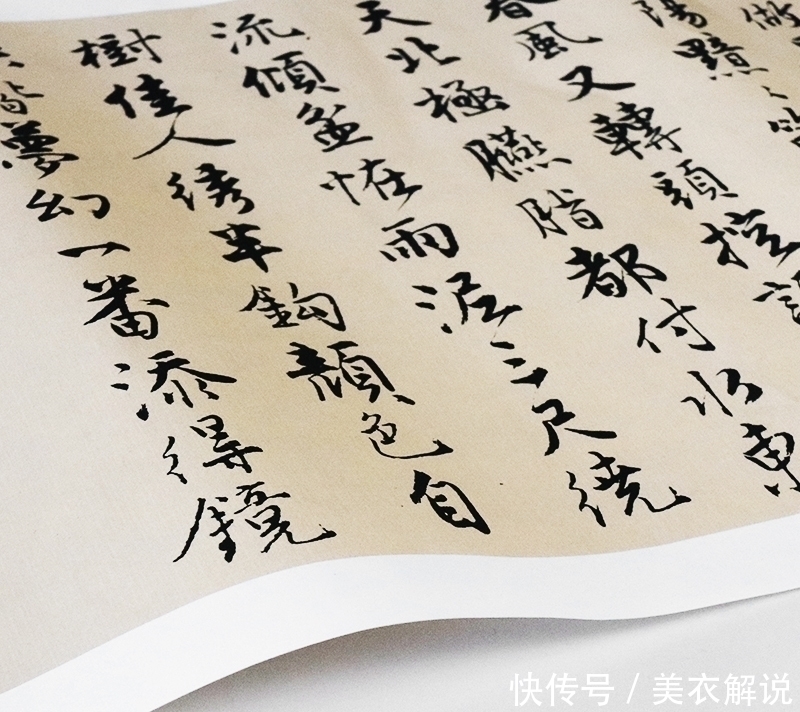 做
陽黯々笛
春風又轉頭控訴
天北極臙脂都付水東
流傾盆怪雨泥三尺繞
樹佳人綉半鈎顏色自
夢幻一番添得鏡
快传号 / 美衣解说